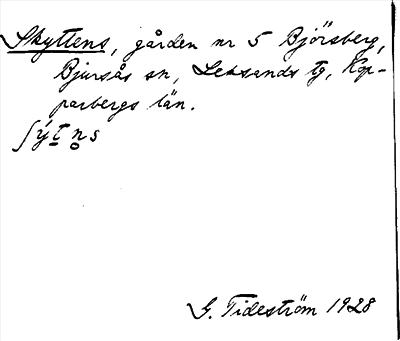 Skyttens, gården nr 5 Björsberg,
Bjursås sn, Leksands tg, Kop-
parbergs län.
ʃýt̠n̥s
G. Tideström 1928